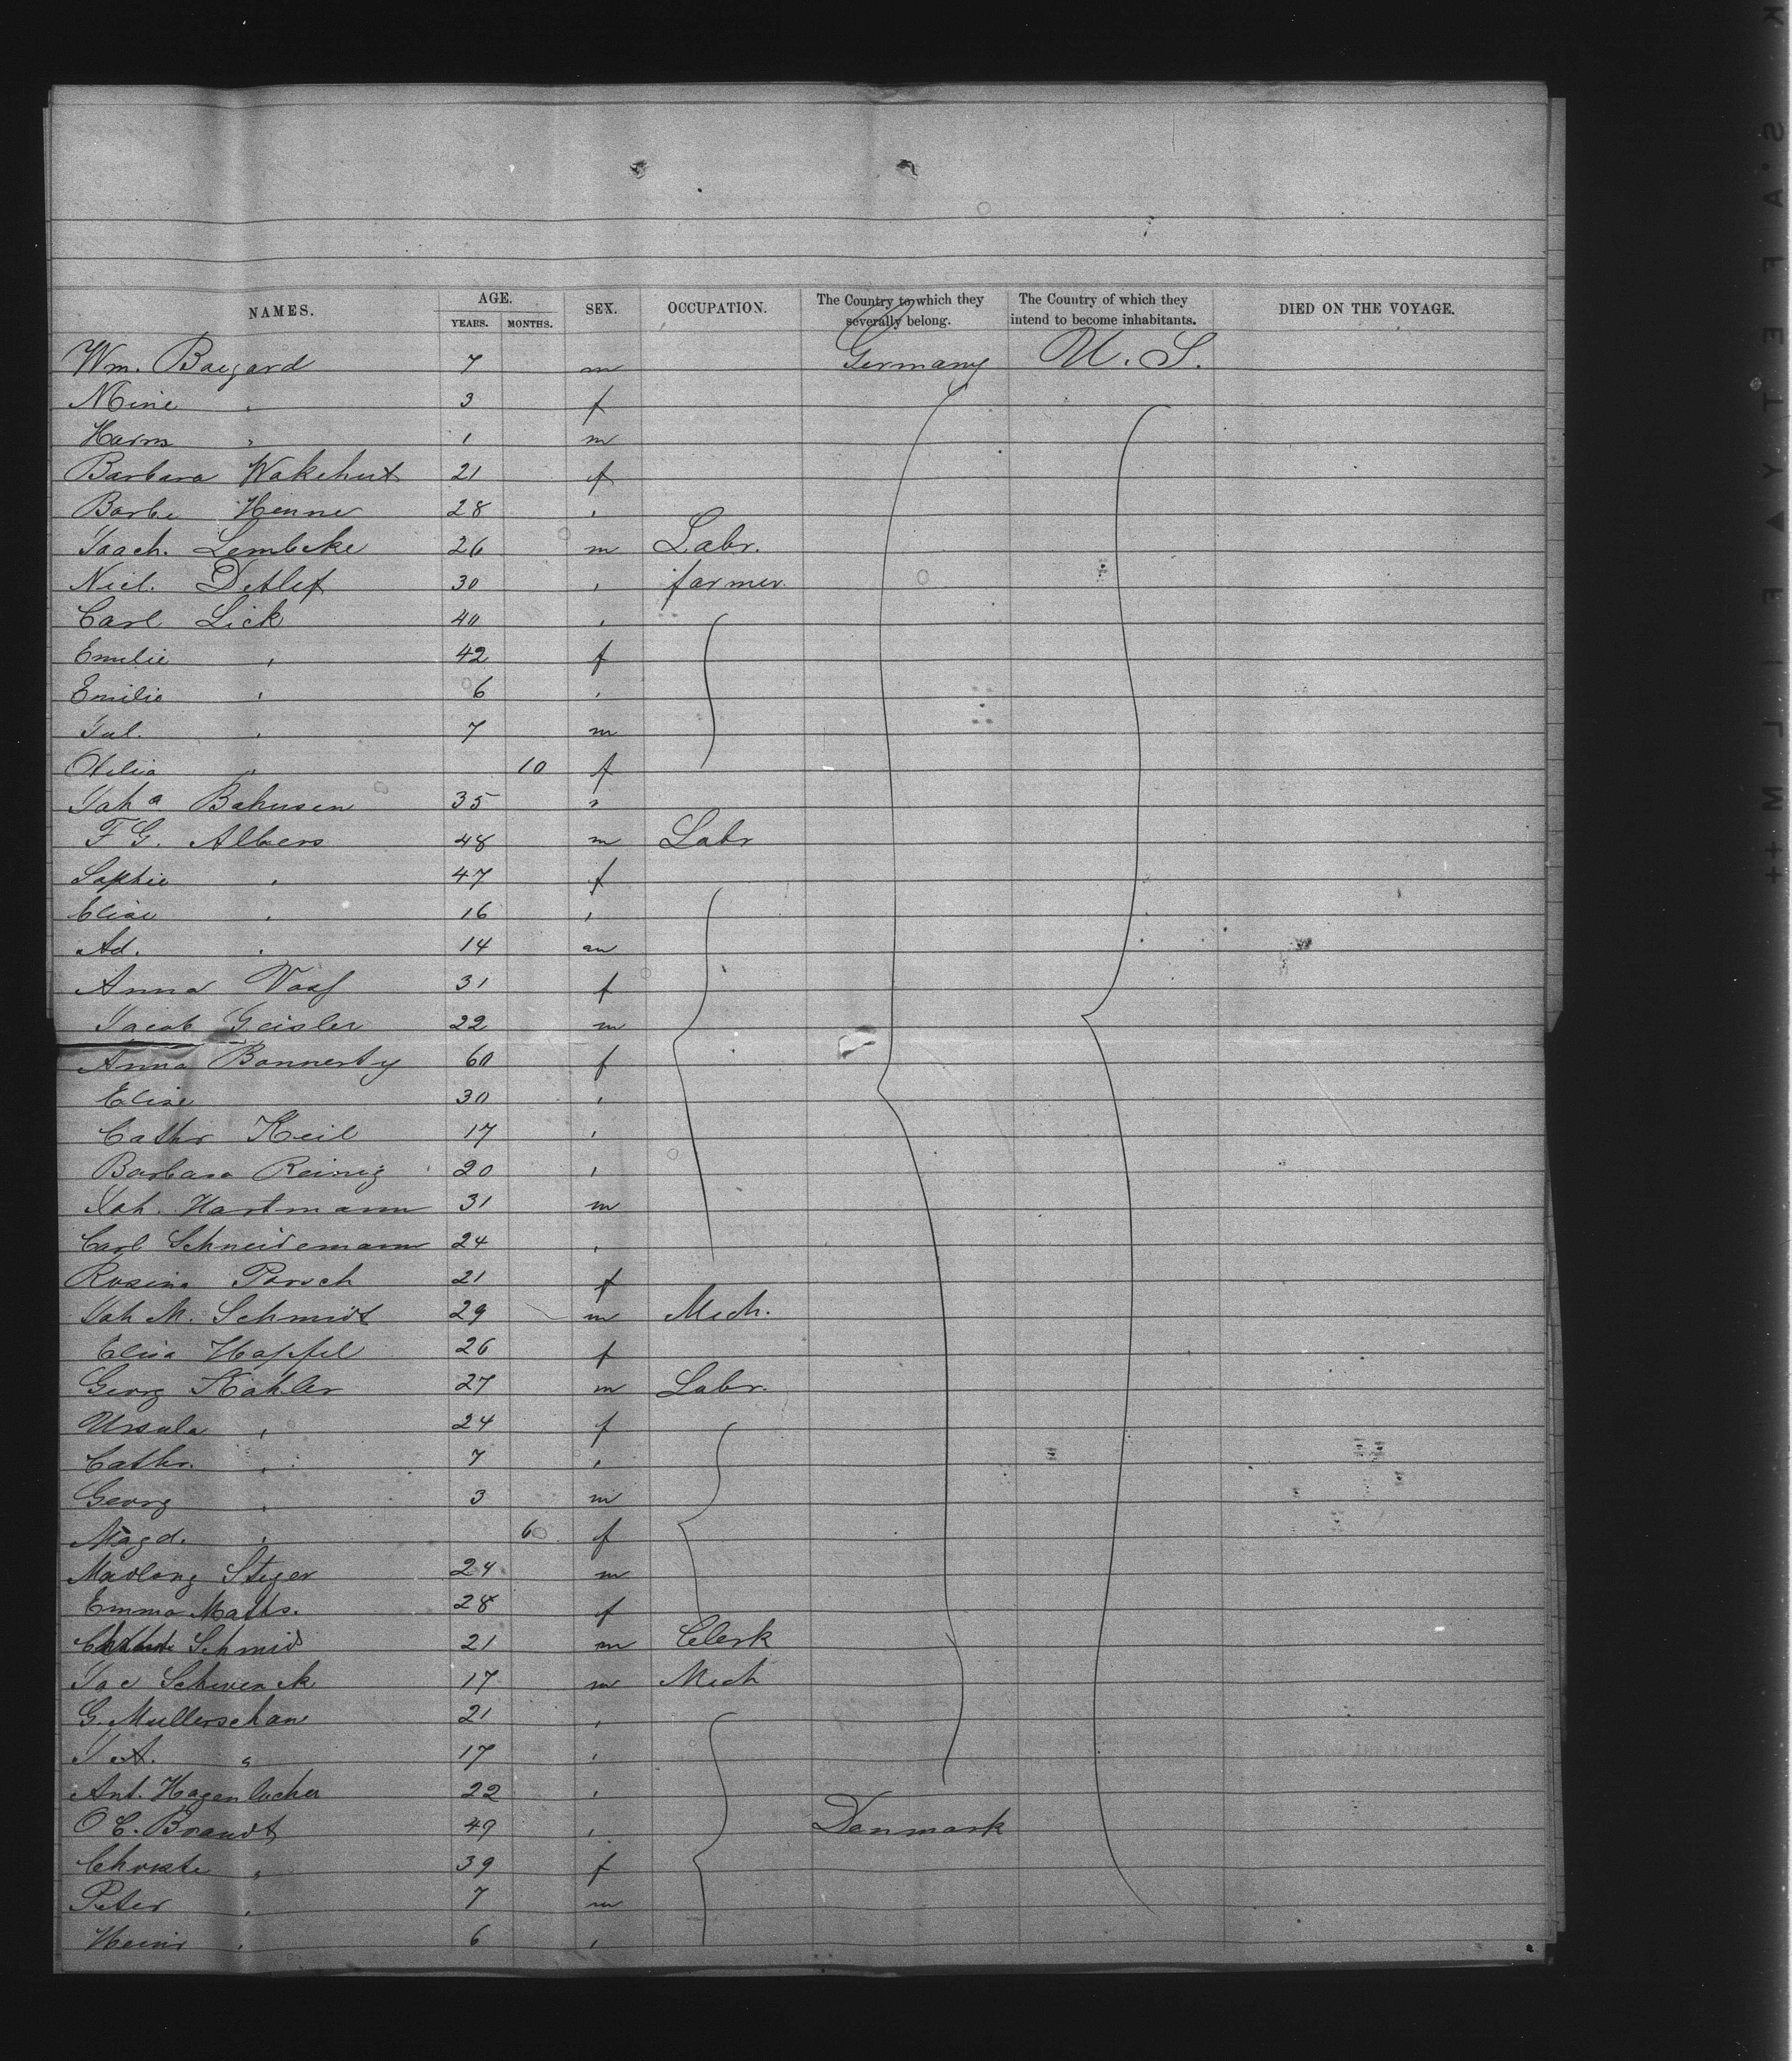 NAMES. AGE. SEX. OCCUPATION. The Country to which they severally belong. The Country of which they intend to become inhabitants. DIED ON THE VOYAGE.
YEARS. MONTHS.
Wm. Baegard 7 m Germany U. S.
Mine " 3 f
Harm " 1 m
Barbara Wakehut 21 f
Barbe Henne 28 "
Joach. Lembcke 26 m Labr.
Nicl. Detlef 30 " farmer
Carl Lick 40 "
Emilie " 42 f
Emilie " 6 "
Jul. " 7 m
Otilia " 10 f
Joha Bahusen 35 "
F G. Albers 48 m Labr
Sophie " 47 f
Elise " 16 "
Ad. " 14 m
Anna Voss 31 f
Jacob Geisler 22 m
Anna Bonnerty 60 f
Elise 30 "
Cathr Keil 17 "
Barbara Reinig 20 "
Joh. Hartmann 31 m
Carl Schneidemann 24 "
Rosina Porsch 21 f
Joh M. Schmidt 29 m Mech.
Elisa Hopfel 26 f
Georg Kohler 27 m Labr.
Ursula " 24 f
Cathr. " 7 "
Georg " 3 m
Magd. " 6 f
Madlong Steger 24 m
Emma Maths. 28 f
Schmid 21 m Clerk
Jac Schwenck 17 m Mech
G. Mullerschan 21 "
J A. " 17 "
Ant. Hagenlocher 22 "
O C. Brandt 49 " Denmark
Christe " 39 f
Peter " 7 m
Heinr " 6 "
SAFETY ▲ FILM ++